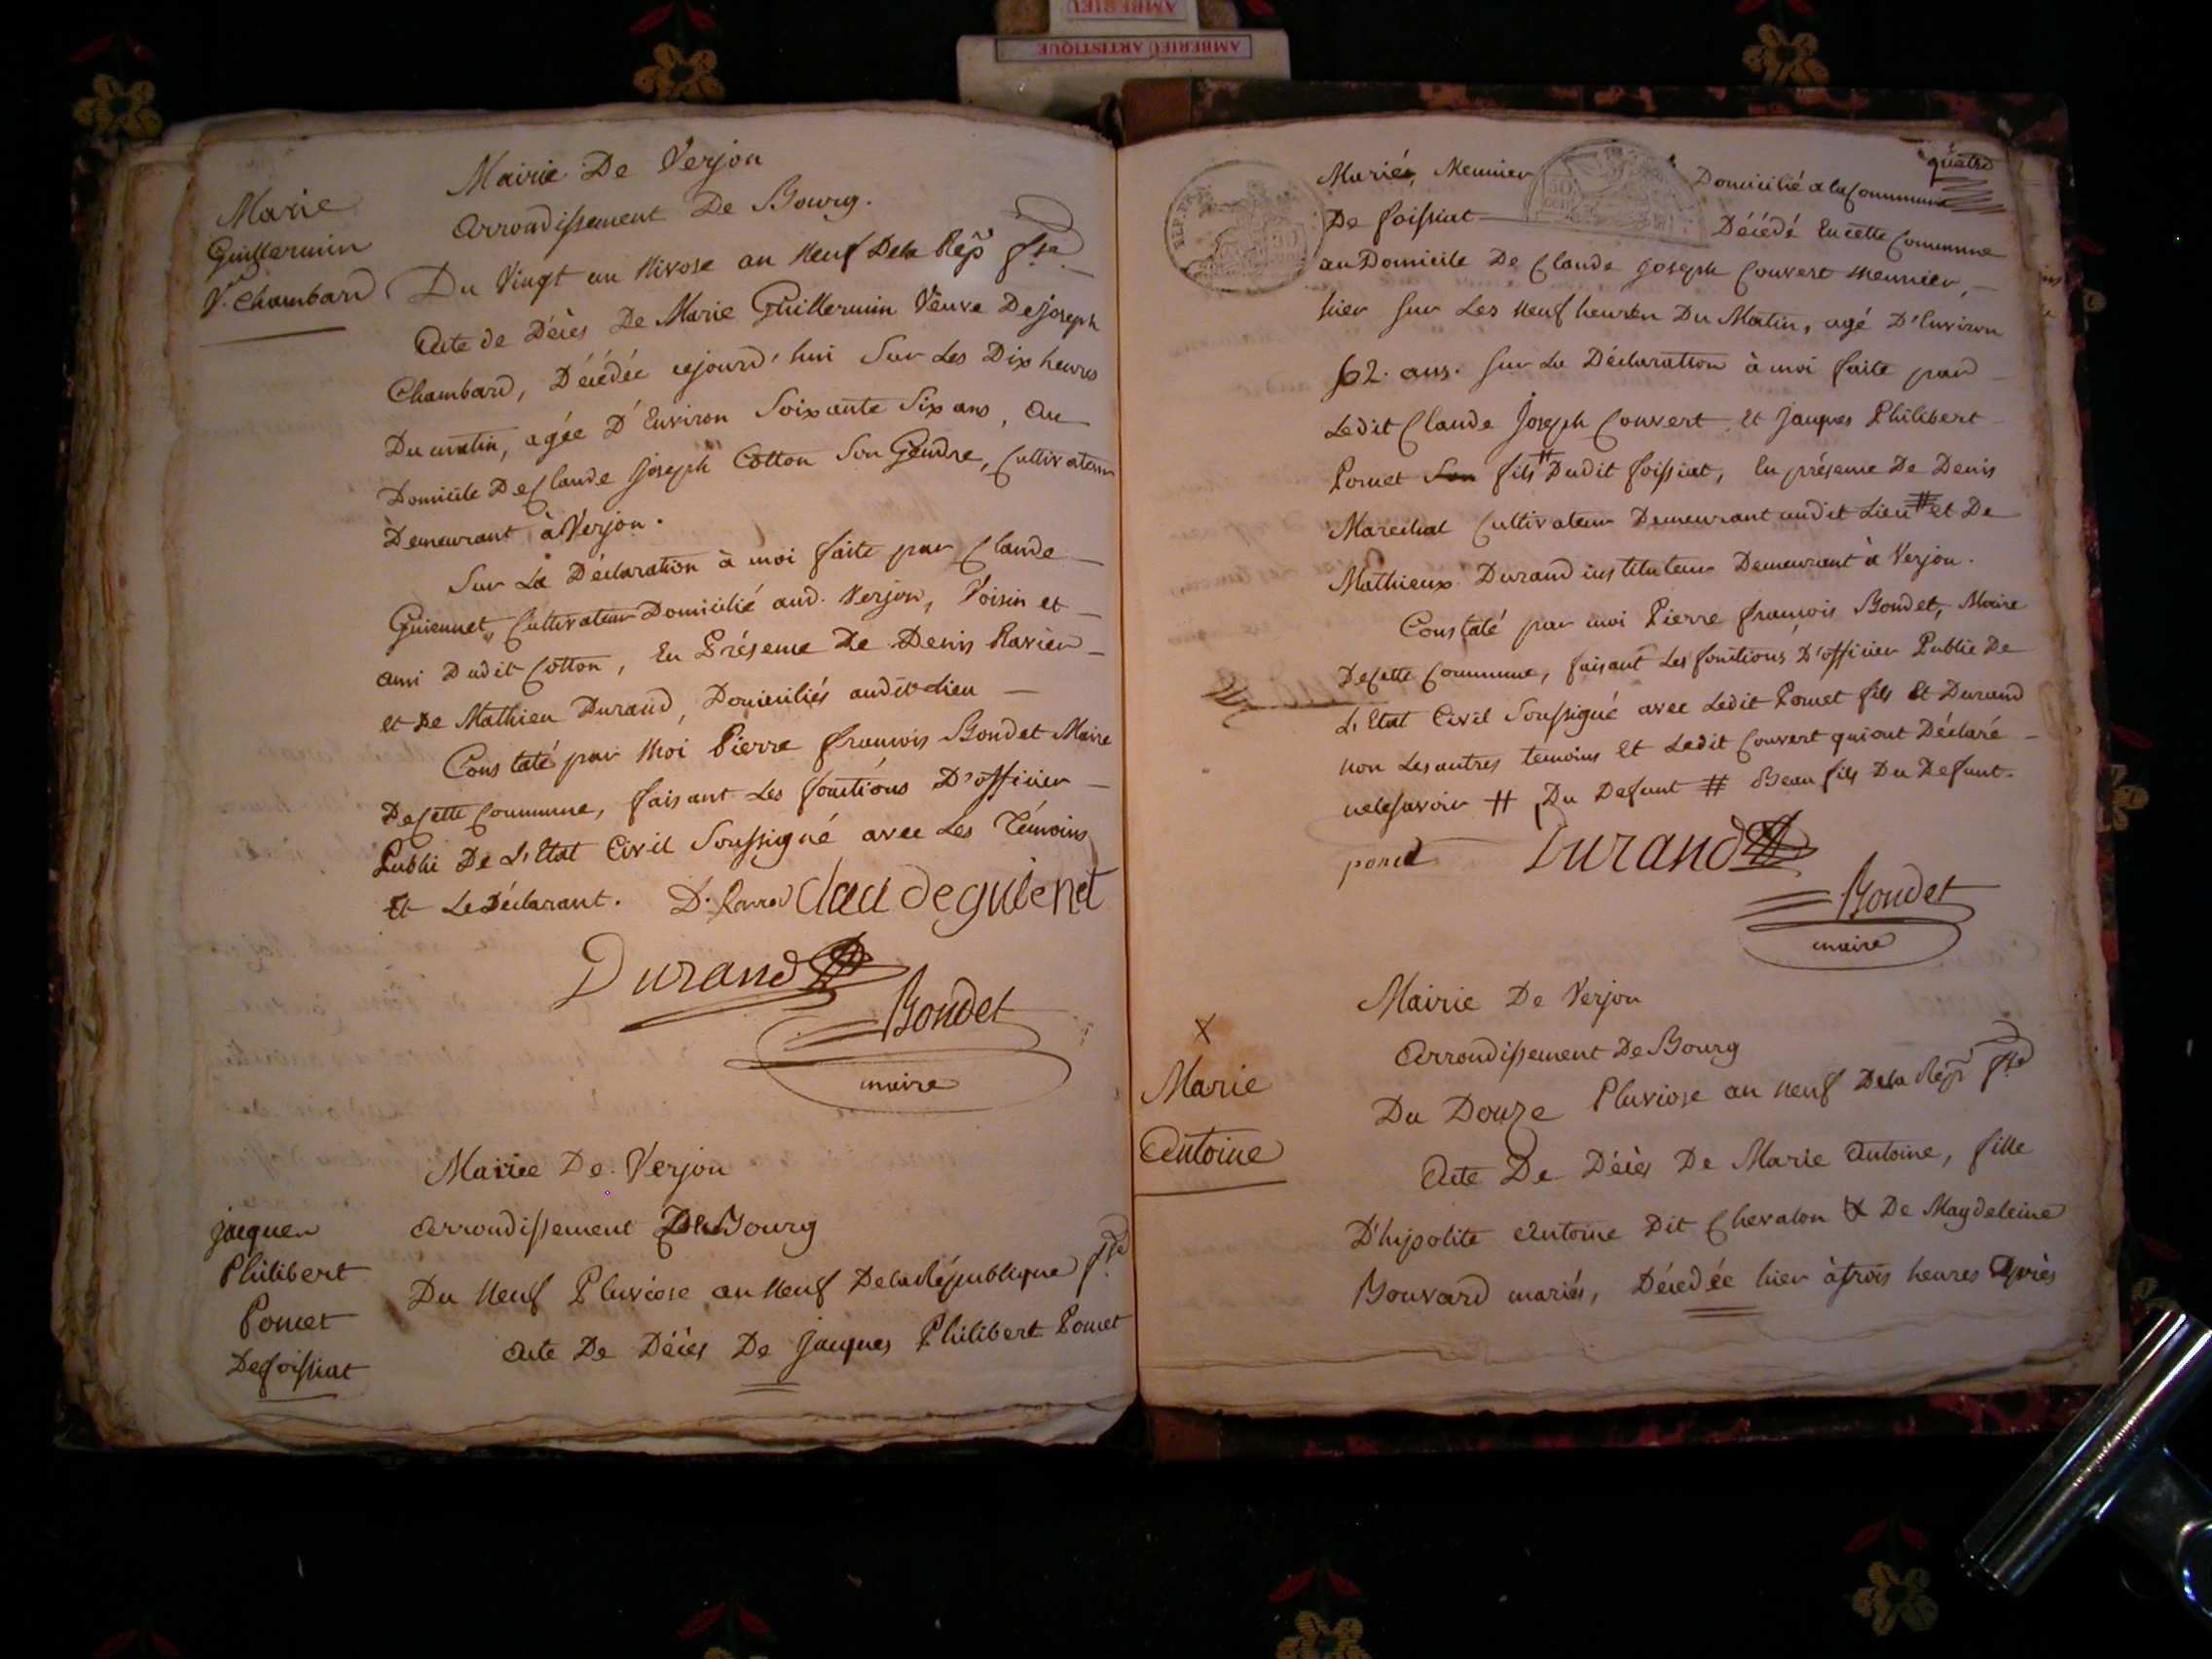 AMBERIEU
AMBERIEU ARTISTIQUE
Mairie De Verjon
Arrondissement De Bourg.
Marie
Guillermin
Ve. Chambard
Du Vingt un Nivose an Neuf De la Rep. fse
Acte de Décès De Marie Guillermin Veuve De joseph
Chambard, Décédée cejourd'hui Sur Les Dix heures
Du matin, agée D'Environ Soixante Six ans, Au
Domicile De Claude Joseph Cotton Son Gendre, Cultivateur
Demeurant à Verjon.
Sur La Déclaration à moi faite par Claude
Guiennet, Cultivateur Domicilié aud. Verjon, Voisin et
ami Dudit Cotton, En Présence De Denis Ravier
et De Mathieu Durand, Domiciliés audit Lieu
Constaté par Moi Pierre françois Bondet Maire
De Cette Commune, faisant Les fonctions D'officier
Public De L'Etat Civil Soussigné avec Les Témoins
Et Le Déclarant. claudeguienet
Durand
Bondet
maire
Mairie De Verjon
Arrondissement De Bourg
jacques
Philibert
Pomet
De foissiat
Du Neuf Pluviose an Neuf De la République fse
Acte De Décès De Jacques Philibert Pomet
quatre
REP. FRA.
50
Mariés, Meunier Domicilié a la Commune
De foissiat Décédé En cette Commune
au Domicile De Claude Joseph Couvert Meunier,
hier Sur Les Neuf heures Du Matin, agé D'Environ
62. ans. Sur La Déclaration à moi faite par
Ledit Claude Joseph Couvert Et Jacques Philibert
Pomet Son fils # Dudit foissiat, En présence De Denis
Marechal Cultivateur Demeurant audit Lieu # et De
Mathieux Durand instituteur Demeurant à Verjon.
Constaté par moi Pierre françois Bondet, Maire
De Cette Commune, faisant Les fonctions D'officier Public De
L'Etat Civil Soussigné avec Ledit Pomet fils Et Durand
non Les autres temoins Et Ledit Couvert qui ont Déclaré
ne le Savoir # Du Defunt # Beau fils Du Defunt.
Durand
Bondet
maire
Mairie De Verjon
Arrondissement De Bourg
X
Marie
Antoine
Du Douze Pluviose an Neuf De la Rep. fse
Acte De Décès De Marie Antoine, fille
D'hipolite Antoine Dit Chevalon & De Magdeleine
Bouvard mariés, Décédée hier à trois heures Après